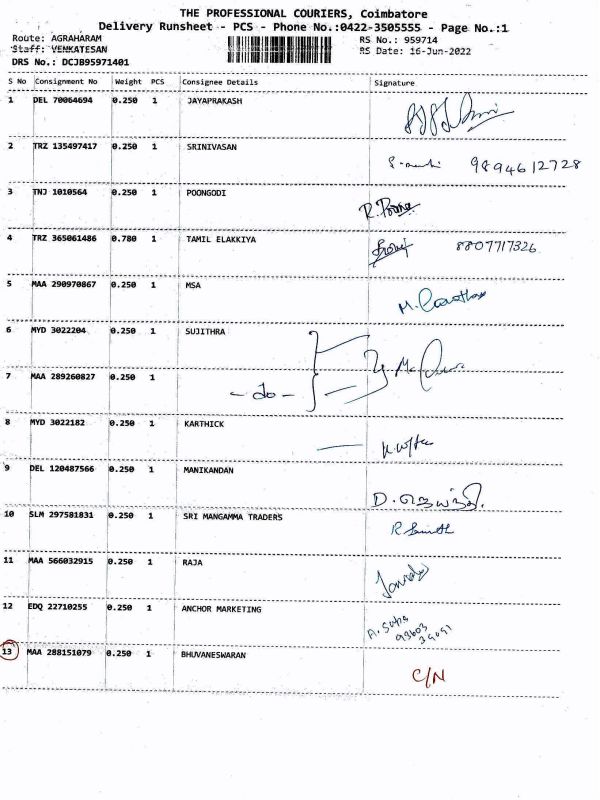 THE PROFESSIONAL COURIERS, Coimbatore
Delivery Runsheet - PCS - Phone No.:0422-3505555 - Page No.:1
Route: AGRAHARAM RS No.: 959714
Staff: VENKATESAN RS Date: 16-Jun-2022
DRS No.: DCJB95971401
S No Consignment No Weight PCS Consignee Details Signature
1 DEL 70064694 0.250 1 JAYAPRAKASH
2 TRZ 135497417 0.250 1 SRINIVASAN 9894612728
3 TNJ 1010564 0.250 1 POONGODI
4 TRZ 365061486 0.780 1 TAMIL ELAKKIYA 8807717326
5 MAA 290970867 0.250 1 MSA
6 MYD 3022204 0.250 1 SUJITHRA
7 MAA 289260827 0.250 1 - do -
8 MYD 3022182 0.250 1 KARTHICK
9 DEL 120487566 0.250 1 MANIKANDAN
10 SLM 297581831 0.250 1 SRI MANGAMMA TRADERS
11 MAA 566032915 0.250 1 RAJA
12 EDQ 22710255 0.250 1 ANCHOR MARKETING
13 MAA 288151079 0.250 1 BHUVANESWARAN C/N